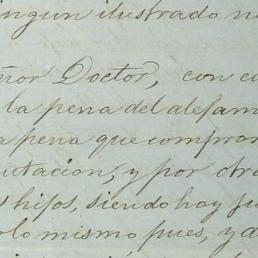 ningun ilustrado no
eñor Doctor, con co
la pena del alejam
a pena que compro
utacion, y por otr
s hijos, siendo hoy fu
olo mismo pues, y d